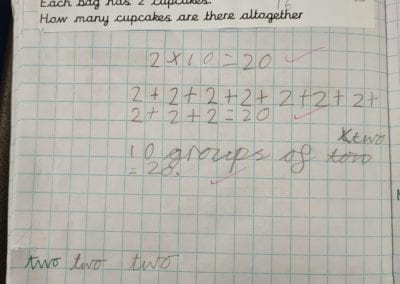 Each bag has 2 cupcakes.
How many cupcakes are there altogether
2 × 10 = 20
2 + 2 + 2 + 2 + 2 + 2 + 2 +
2 + 2 + 2 = 20
two
10 groups of
= 20.
two two two